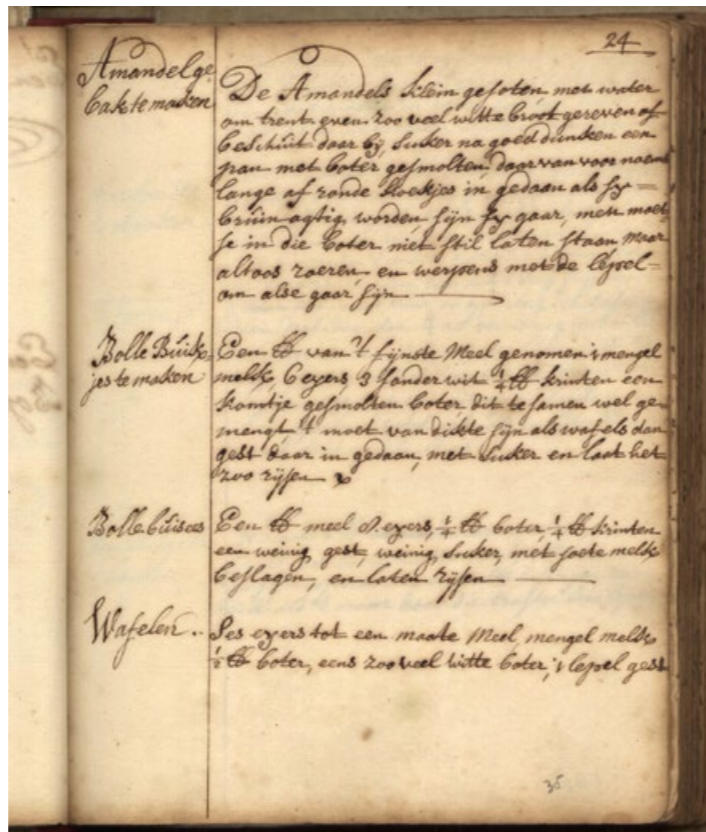 24
Amandelge
bak te maken
De Amandels klein gestoten, met water
om trent even zoo veel witte broot gereven of
beschuit daar bij, suiker na goed duncken een
pan met boter gesmolten, daar van voor naame
lange af ronde koekjes in gedaan als sy
bruin agtig worden sijn sy gaar, men moet
se in die boter niet stil laten staan maar
altoos roeren en werpens met de lepel
om alse gaar sijn
Bolle Buisk
jes te maken
Een lb van 't fijnste Meel genomen 1 mengel
melk, 6 eyers 3 sonder wit 1/4 lb krinten een
komtje gesmolten boter dit te samen wel ge
mengt 't moet van dikte sijn als wafels dan
gest daar in gedaan, met suiker en laat het
zoo rijsen
Bolle buisies
Een lb meel 8 eyers, 1/4 lb boter, 1/4 lb krinten
een weinig gest, weinig suiker, met soete melk
beslagen, en laten rijsen
Wafelen
Ses eyers tot een maate Meel mengel melk
1/2 lb boter, eens zoo veel witte boter, 1 lepel gest
35